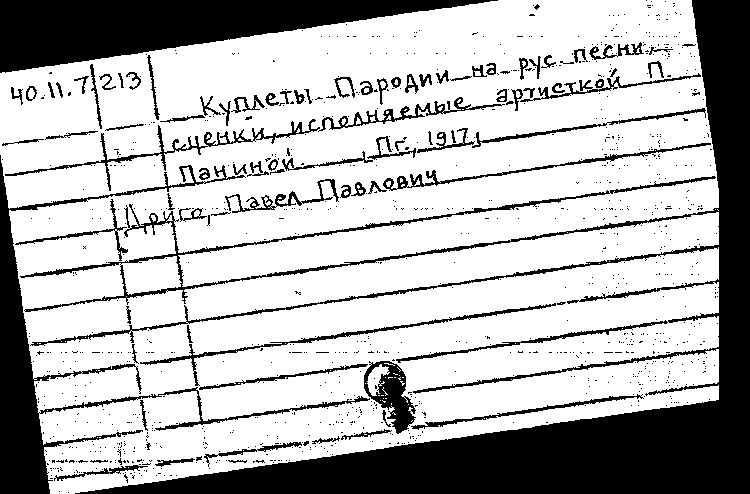 40.11.7/213
Куплеты Пародии на рус песни,
сценки, исполняемые артисткой П.
Паниной. Пг., 1917,
Дриго, Павел Павлович